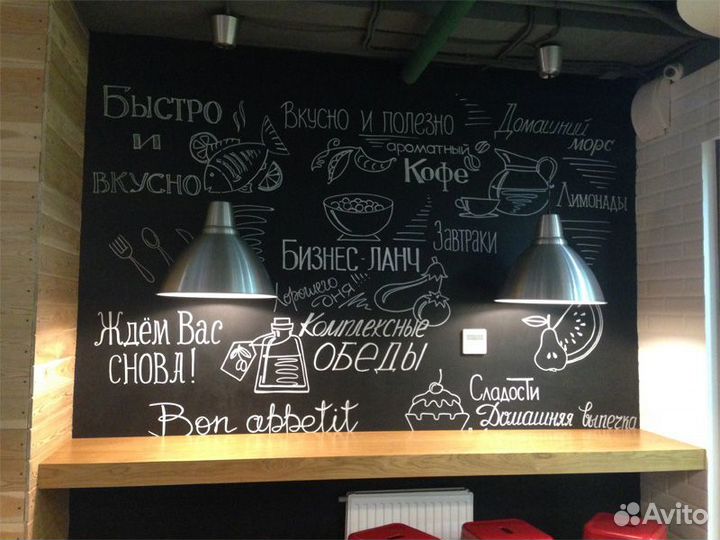 Быстро
и
вкусно
Вкусно и полезно
ароматный
Кофе
Домашний
морс
Лимонады
Завтраки
Бизнес-ланч
Хорошего
дня!!!
Ждём Вас
снова!
Комплексные
обеды
Bon appetit
Сладости
Домашняя выпечка
Avito